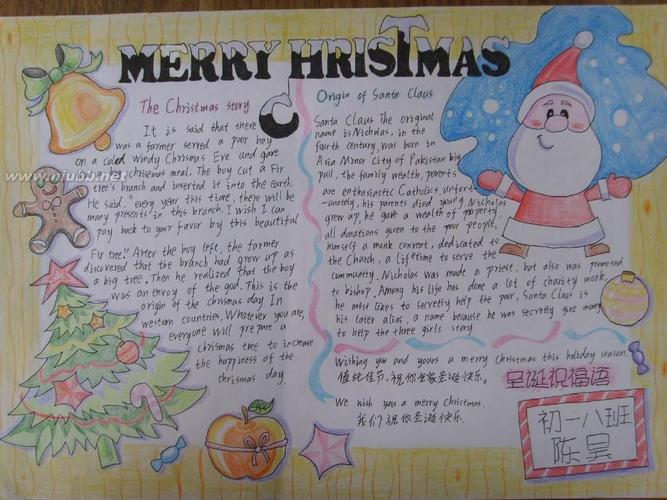 MERRY CHRISTMAS
The Christmas story
It is said that there
was a farmer served a poor boy
on a cold windy Chrismas Eve and gave
chrismas meal. The boy cut a Fir
tree's branch and inserted it into the Earth.
He said, "every year this time, there will be
many presents in this branch. I wish I can
pay back to your favor by this beautiful
Fir tree." After the boy left, the farmer
discovered that the branch had grow up as
a big tree. Then he realized that the boy
was an envoy of the god. This is the
origin of the chrismas day. In
western countries, Whatever you are,
everyone will prepare a
chrismas tree to increase
the happiness of the
chrismas day.
Origin of Santa Claus
Santa Claus The original
name is Nicholas, in the
fourth century, was born in
Asia Minor City of Pakistan big
pull, the family wealth, parents
are enthusiastic Catholics, unfort-
unately, his parents died young. Nicholas
grew up, he gave a wealth of property
all donations given to the poor people,
himself a monk convent, dedicated to
the Church, a lifetime to serve the
community. Nicholas was made a priest, but also was promoted
to bishop. Among his life has done a lot of charity work,
he most likes to secretly help the poor, Santa Claus is
his later alias, a name because he was secretly give money
to help the three girls story
Wishing you and yours a merry Christmas this holiday season.
值此佳节,祝你全家圣诞快乐。
圣诞祝福语
We wish you a merry Christmas.
我们祝你圣诞快乐.
初一八班
陈昊